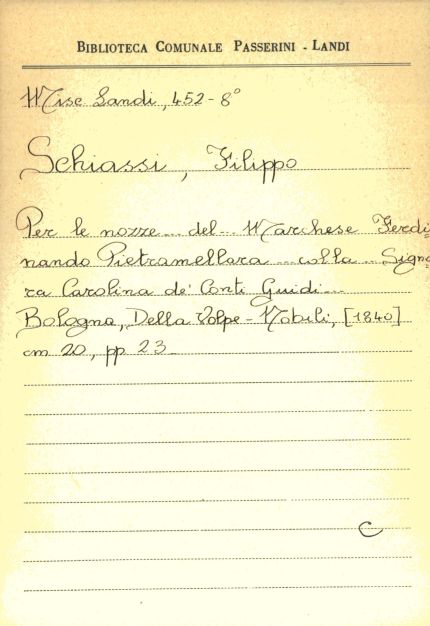 BIBLIOTECA COMUNALE PASSERINI - LANDI
Misc Landi, 452-8°
Schiassi, Filippo
Per le nozze... del... Marchese Ferdi=
nando Pietramellara... colla... Signo=
ra Carolina de' Conti Guidi...
Bologna, Della Volpe - Nobili, [1840]
cm 20, pp 23
C